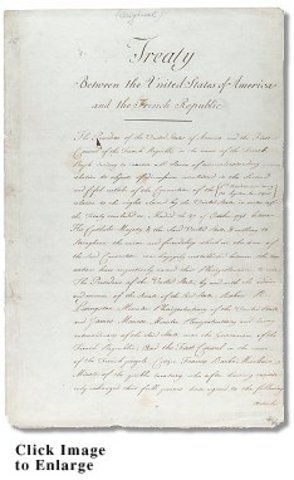 (Original)
Treaty
Between the United States of America
and the French Republic
The President of the United States of America and the First
Consul of the French Republic in the name of the French
People desiring to remove all Source of misunderstanding
relative to objects of discussion mentioned in the Second
and fifth articles of the Convention of the
relative to the rights claimed by the United States in virtue of
the Treaty concluded at Madrid the 27 of October 1795 between
His Catholic Majesty & the Said United States, & willing to
Strengthen the union and friendship which at the time of
the Said Convention was happily reestablished between the two
nations have respectively named their Plenipotentiaries to wit
The President of the United States, by and with the advice
and consent of the Senate of the Said States, Robert R.
Livingston Minister Plenipotentiary of the United States
and James Monroe Minister Plenipotentiary and Envoy
extraordinary of the Said States near the Government of the
French Republic; And the First Consul in the name
of the French people, Citizen Francis Barbé Marbois
Minister of the public treasury who after having respec-
tively exchanged their full powers have agreed to the following
Articles
Click Image
to Enlarge